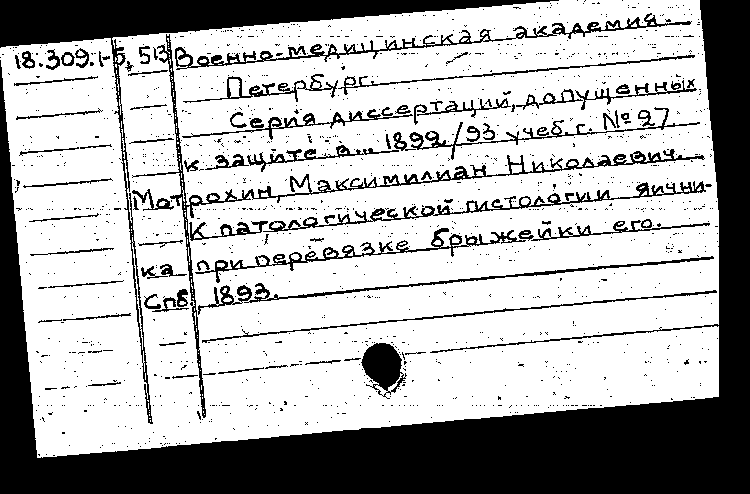 18.309.1-5, 513 Военно-медицинская академия.
Петербург.
Серия диссертаций, допущенных
к защите в... 1892/93 учеб. г. № 27
Матрохин, Максимилиан Николаевич.
К патологической гистологии яични-
ка при перевязке брыжейки его.
Спб., 1893.